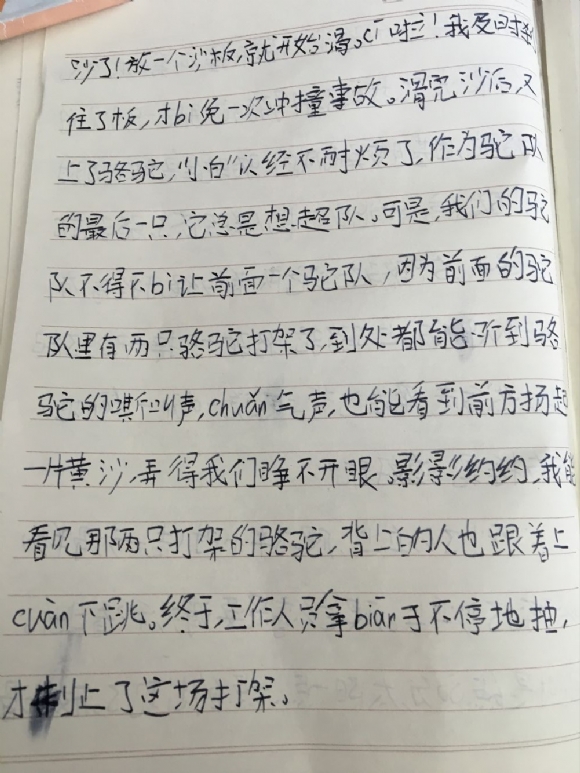 沙了!放一个沙板,就开始滑。cī啦!我及时刹
住了板,才bì免一次冲撞事故。滑完沙后,又
上了骆驼,“小白”以经不耐烦了,作为驼队
的最后一只,它总是想超队。可是,我们的驼
队不得不bì让前面一个驼队,因为前面的驼
队里有两只骆驼打架了,到处都能听到骆
驼的嘶叫声,chuǎn气声,也能看到前方扬起
一片黄沙,弄得我们睁不开眼。影影约约,我能
看见那两只打架的骆驼,背上的人也跟着上
cuàn下跳。终于,工作人员拿biān子不停地抽,
才制止了这场打架。